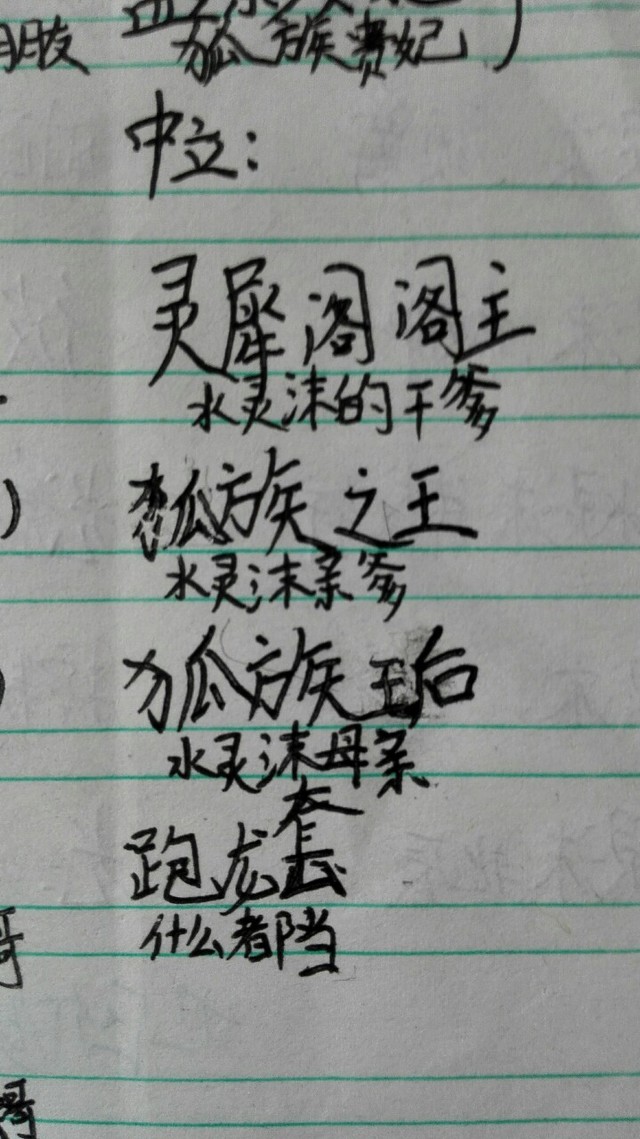 狐族贵妃）
中立：
灵犀阁阁主
水灵沫的干爹
狐族之王
水灵沫亲爹
狐族王后
水灵沫母亲
跑龙套
什么都当
哥
哥